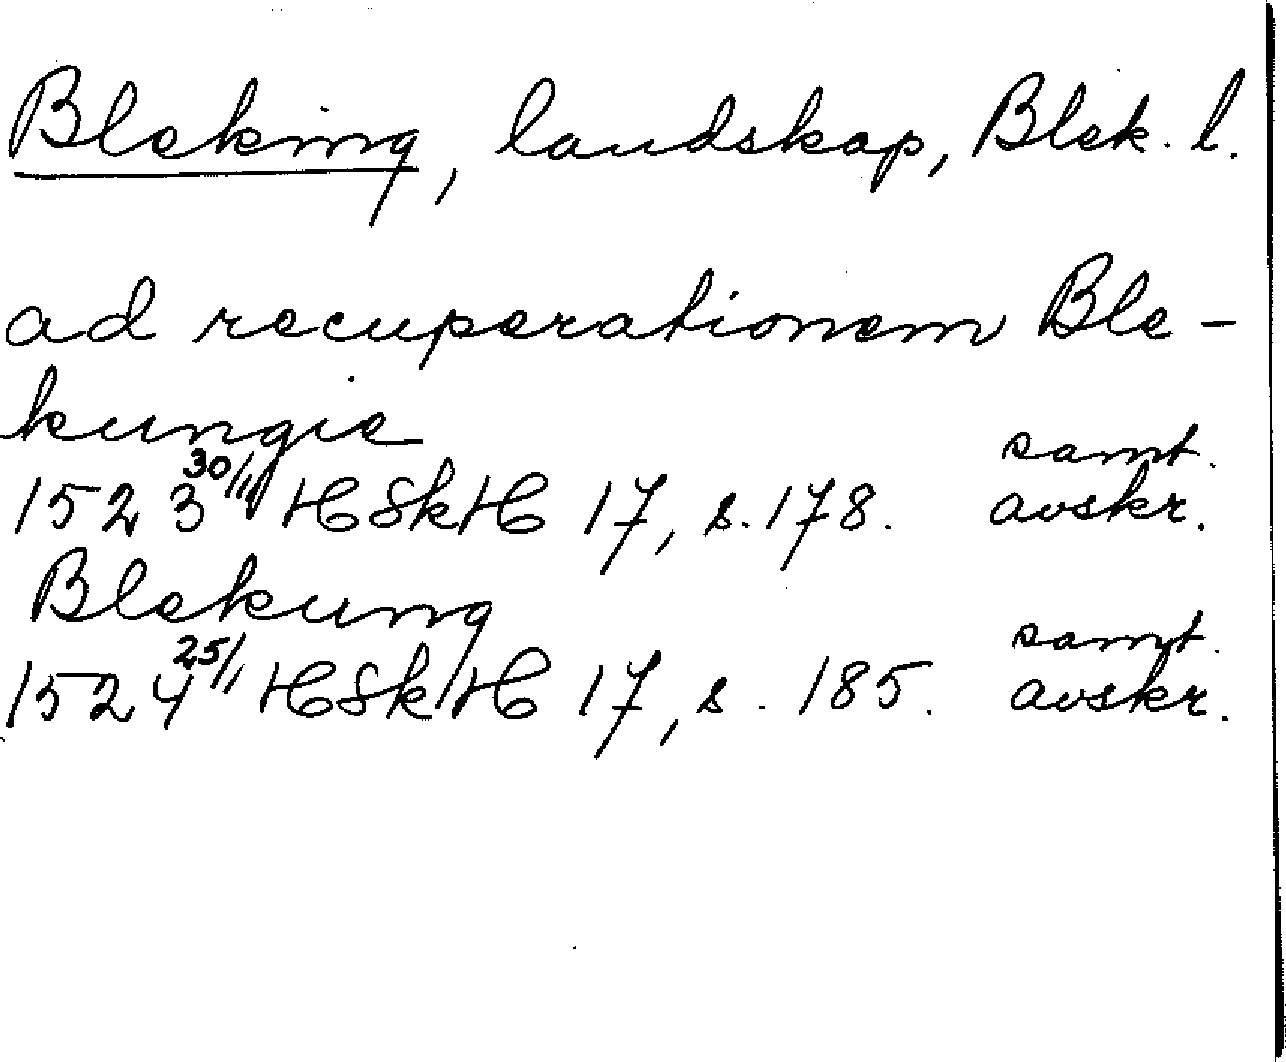 Bleking, landskap, Blek. l.
ad recuperationem Ble-
kungie
1523 30/11 HSkH 17, s. 178. samt. avskr.
Blekung
1524 25/1 HSkH 17, s. 185. samt. avskr.